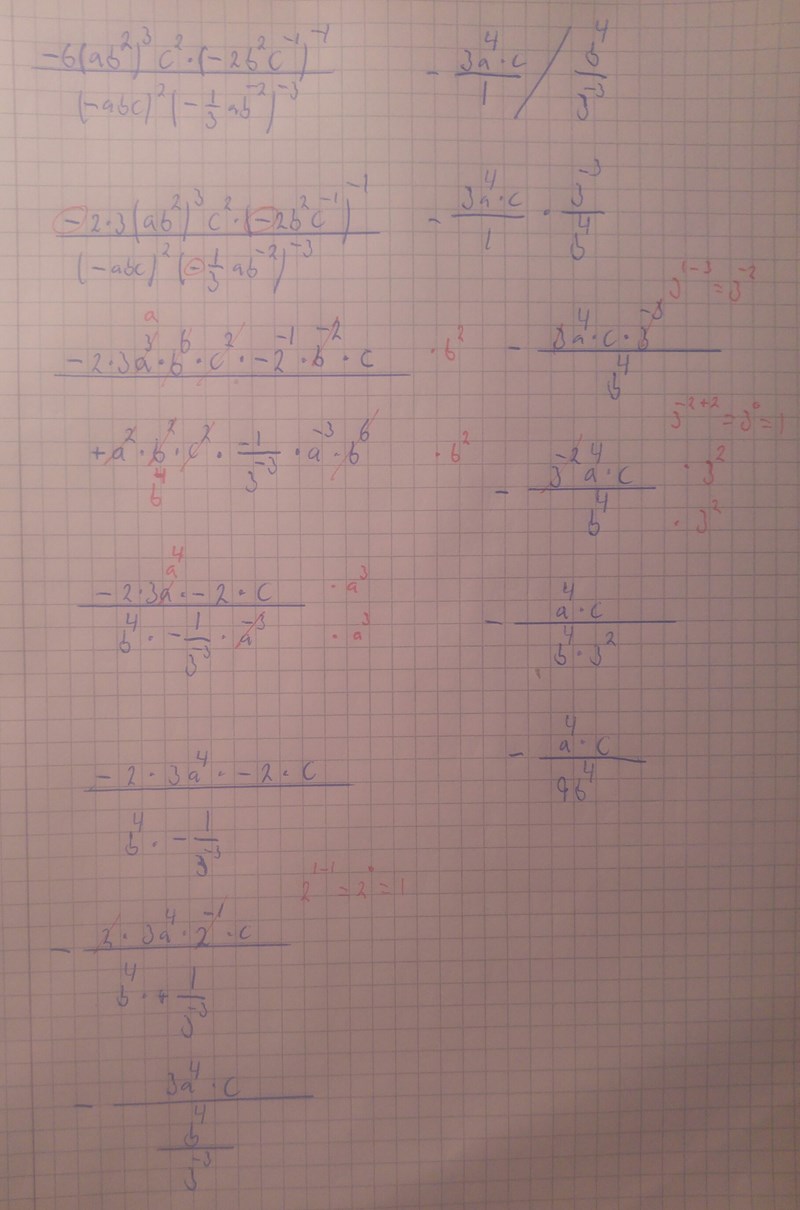 -6(ab²)³c²·(-2b²c⁻¹)⁻¹
(-abc)²(-1/3 ab⁻²)⁻³
-2·3(ab²)³c²·(-2b²c⁻¹)⁻¹
(-abc)²(-1/3 ab⁻²)⁻³
a
-2·3a³·b⁶·c²·-2⁻¹·b⁻²·c ·b²
+a²·b²·c²·-1/3⁻³·a⁻³·b⁶ ·b²
b⁴
a⁴
-2·3a·-2·c ·a³
b⁴·-1/3⁻³·a⁻³ ·a³
-2·3a⁴·-2·c
b⁴·-1/3⁻³
2¹⁻¹=2⁰=1
- 2·3a⁴·2⁻¹·c
b⁴·+1/3⁻³
- 3a⁴·c
b⁴
3⁻³
- 3a⁴·c/1 / b⁴/3⁻³
- 3a⁴·c/1 · 3⁻³/b⁴
3¹⁻³=3⁻²
- 3a⁴·c·3⁻³
b⁴
3⁻²⁺²=3⁰=1
- 3⁻²a⁴·c ·3²
b⁴ ·3²
- a⁴·c
b⁴·3²
- a⁴·c
9b⁴